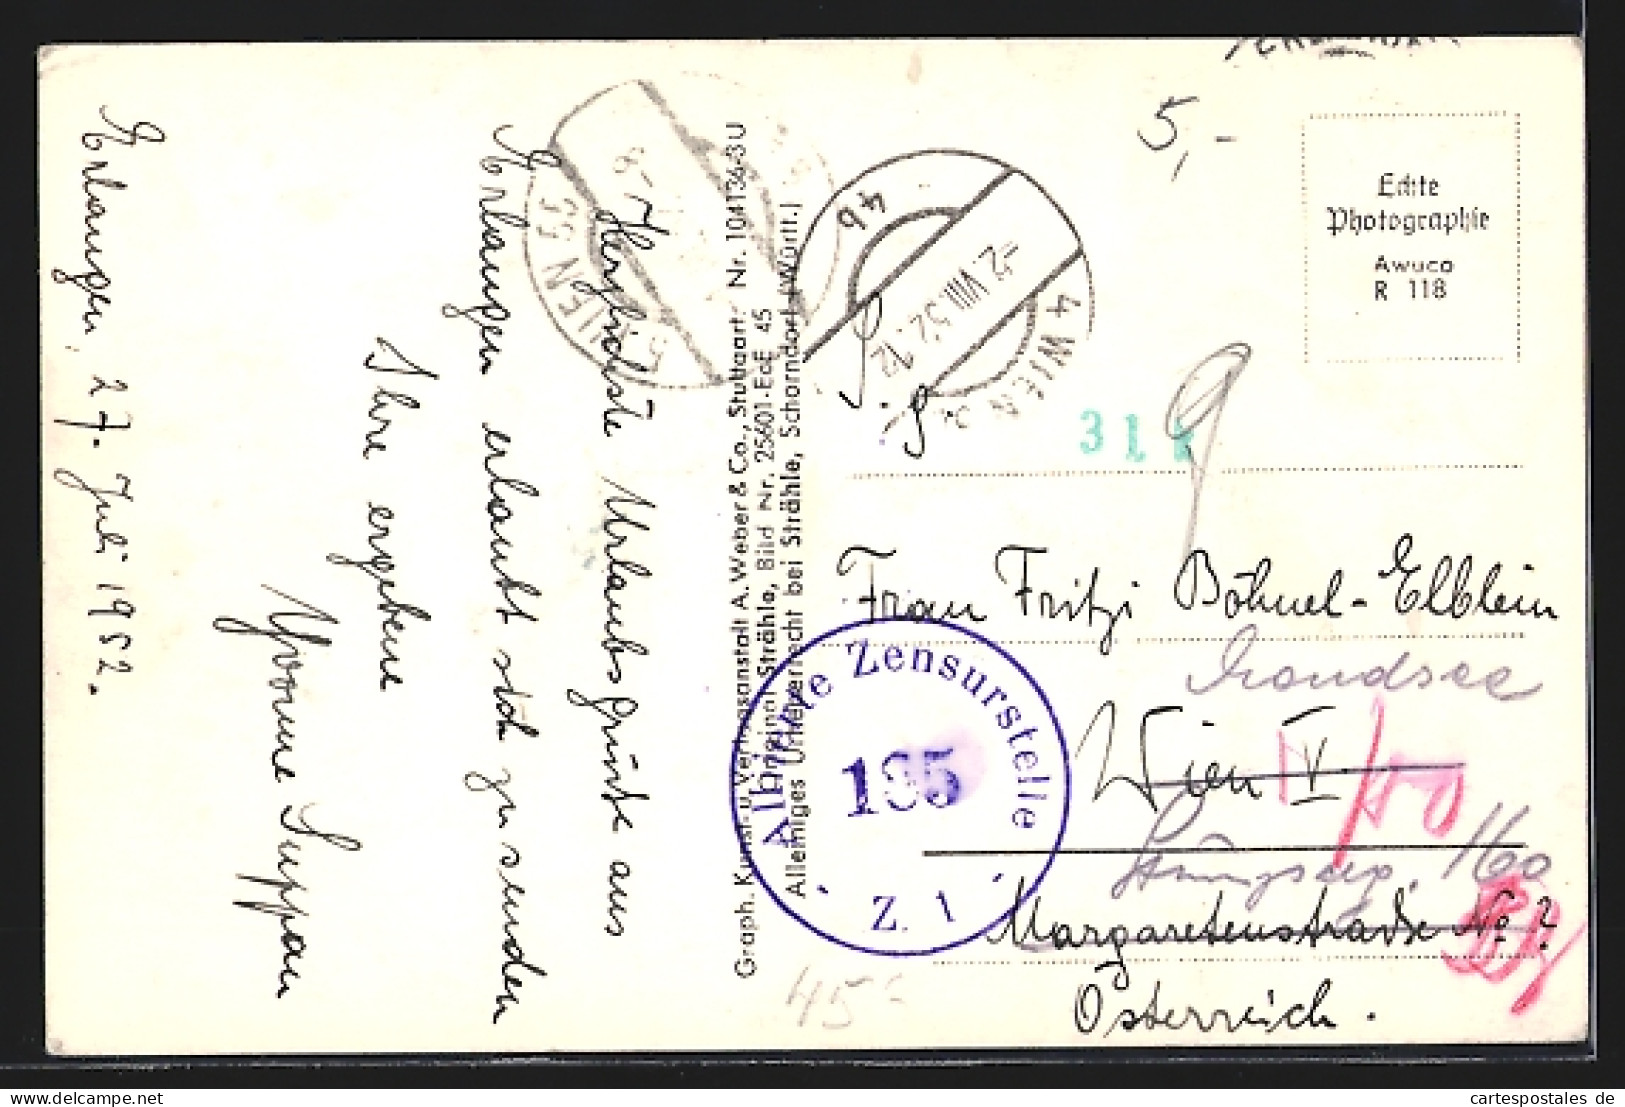 Erlangen, 27. Juli 1952.
Herzlichste Urlaubsgrüße aus
Erlangen erlaubt sich zu senden
Ihre ergebene
Yvonne Suppan
Graph. Kunst- u. Verlagsanstalt A. Weber & Co., Stuttgart. Nr. 104134-3U
Original Strähle, Bild Nr. 25601-EcE 45
Alleiniges Urheberrecht bei Strähle, Schorndorf (Württ.)
WIEN 55
4b
-2.VIII.52.12
4 WIEN
5,-
Echte
Photographie
Awuco
R 118
S. S.
31
9
Frau Fritzi Böhnel-Elblein
Mondsee
Wien V.
160
Margaretenstraße No ?
Österreich.
Alliierte Zensurstelle
Z. 1
45-
www.cartespostales.de